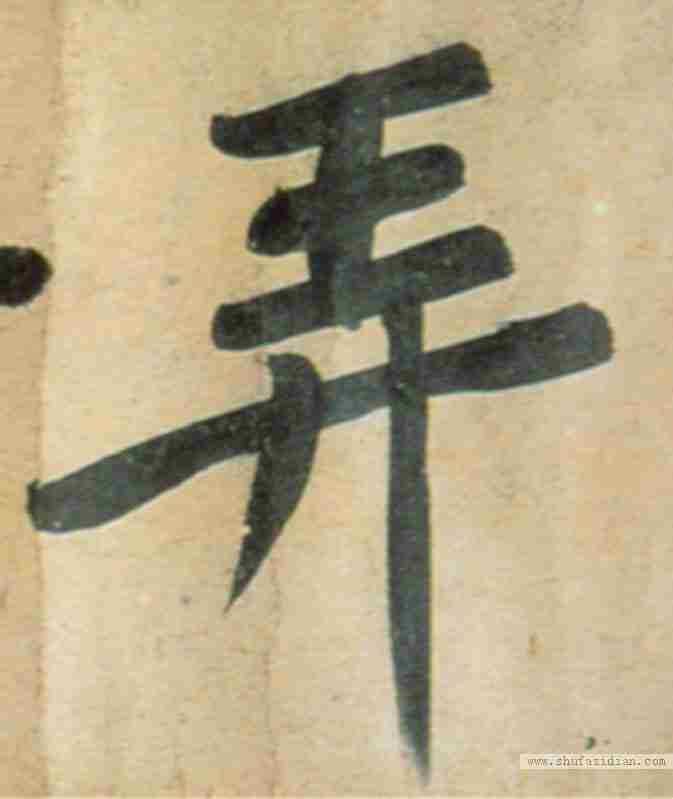 弄
www.shufazidian.com